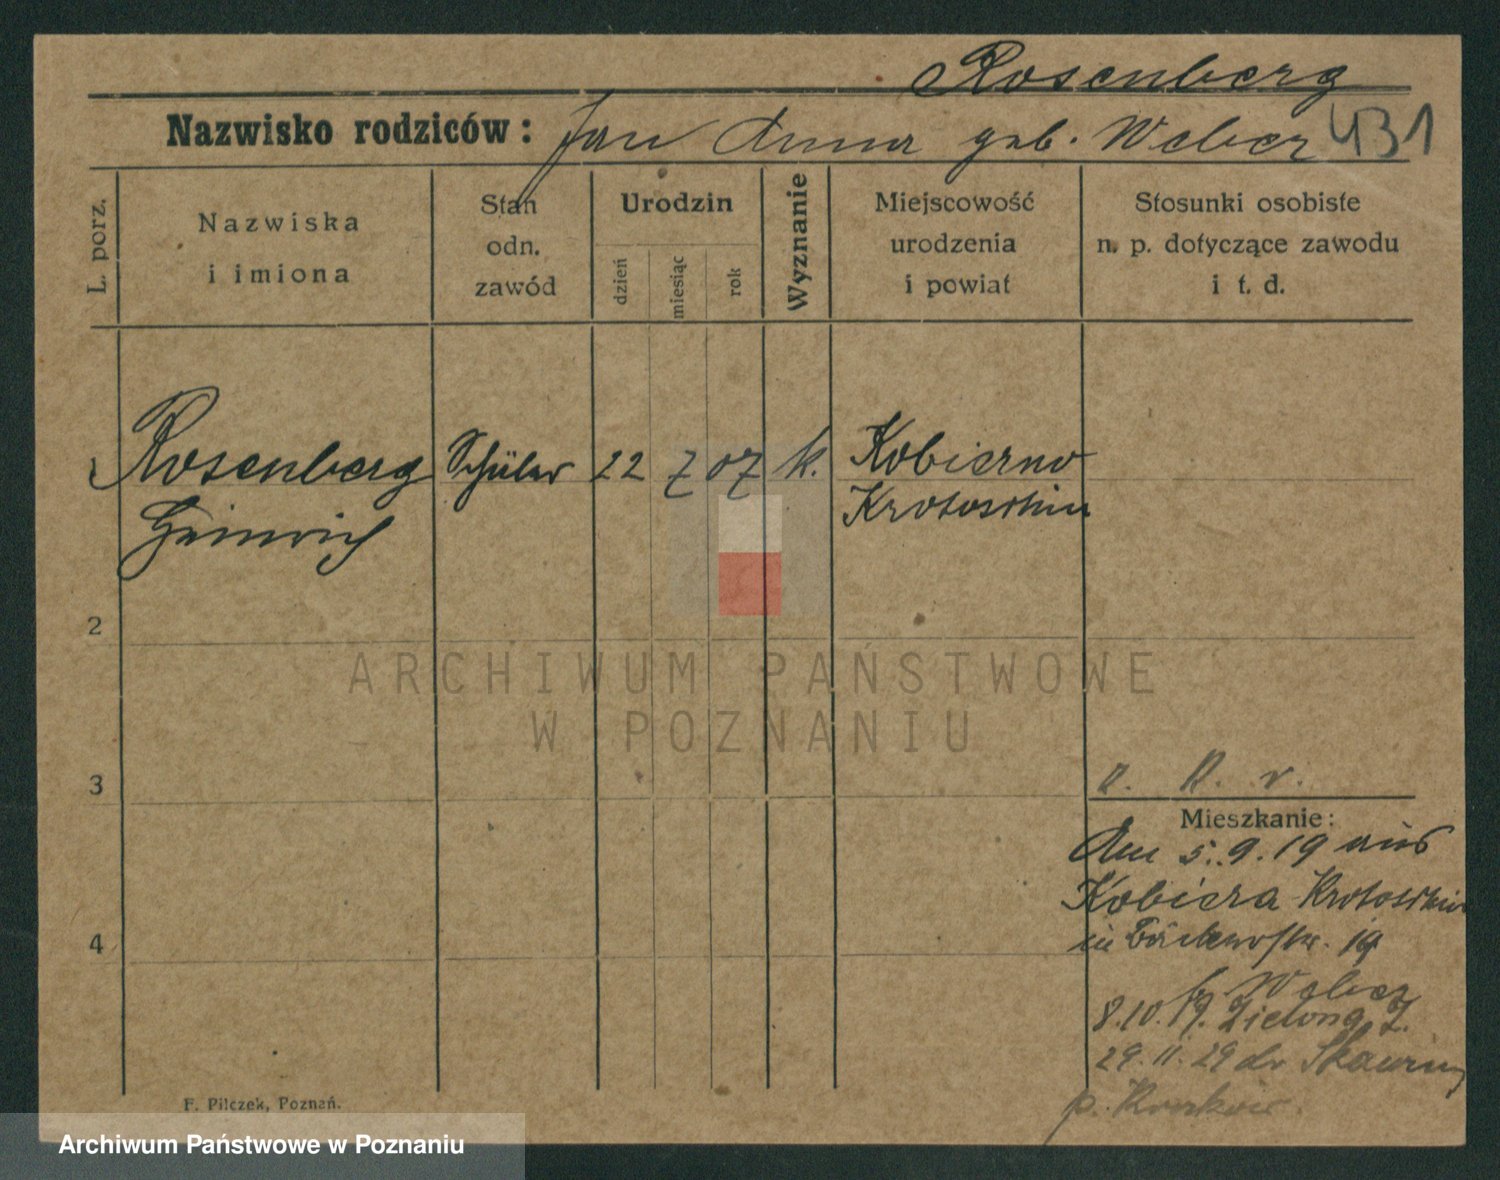 Rosenberg
Nazwisko rodziców: Jan Anna geb. Weber 431
L. porz.
Nazwiska
i imiona
Stan
odn.
zawód
Urodzin
dzień
miesiąc
rok
Wyznanie
Miejscowość
urodzenia
i powiat
Stosunki osobiste
n. p. dotyczące zawodu
i t. d.
1 Rosenberg Schüler 22 7 07 k. Kobierno
Heinrich Krotoschin
2
3
Mieszkanie:
Am 5.9.19 aus
Kobierno Krotoschin
in 19
4
b. Weber
8.10.19. Zielona 7.
29.11.29 do Skawiny
p. Kraków.
F. Pilczek, Poznań.
ARCHIWUM PAŃSTWOWE
W POZNANIU
Archiwum Państwowe w Poznaniu